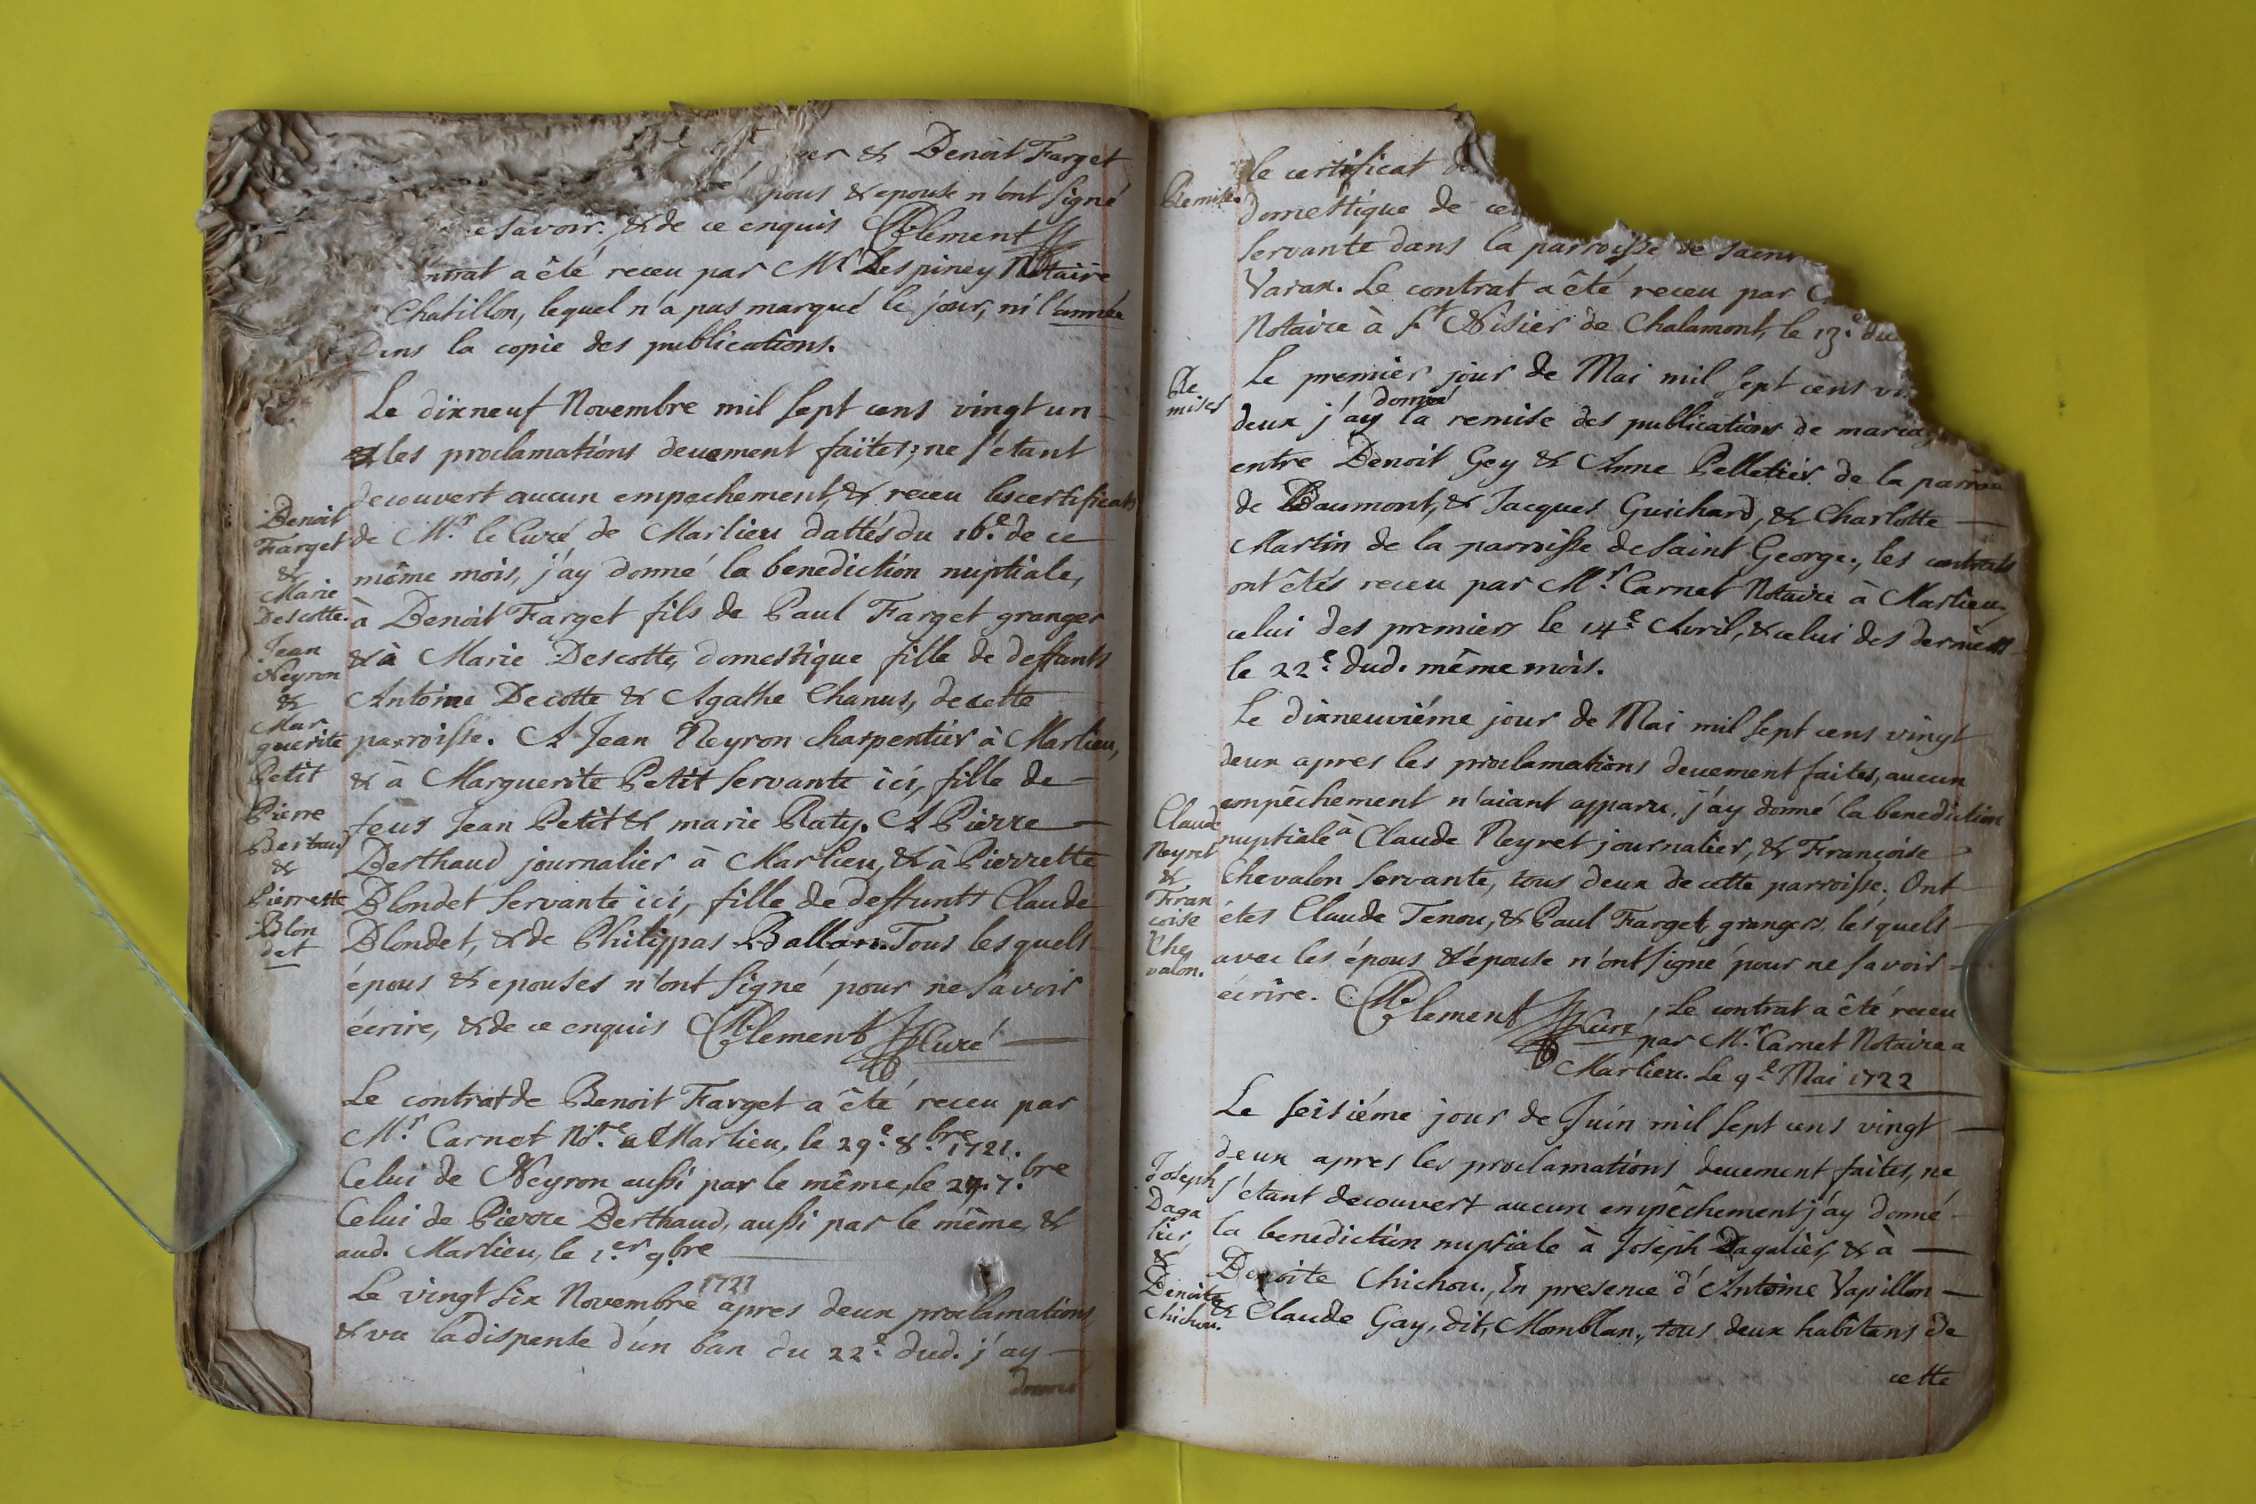 & Benoit Farget
pous & epouse n'ont signé
savoir, & de ce enquis Clement
ntrat a êté receu par Mr Despiney Notaire
Chatillon, lequel n'a pas marqué le jour, ni l'année
Dans la copie des publications.
Le dixneuf Novembre mil sept cens vingt un
& les proclamations deuement faites; ne s'etant
decouvert aucun empechement, & receu les certificats
de Mr. le Curé de Marlieu dattés du 16e. de ce
même mois, j'ay donné la benediction nuptiale,
à Benoit Farget fils de Paul Farget granger
& à Marie Descotte, domestique fille de deffunts
Antoine Decotte & Agathe Chanus, de cette
parroisse. A Jean Neyron charpentier à Marlieu,
& à Marguerite Petit servante ici, fille de
feus Jean Petit & marie Raty. A Pierre
Berthaud journalier à Marlieu, & à Pierrette
Blondet servante ici, fille de deffunts Claude
Blondet, & de Philippas Ballon. Tous lesquels
épous & epouses n'ont signé pour ne savoir
écrire, & de ce enquis Clement Curé
Benoit
Farget
&
Marie
Descotte.
Jean
Neyron
&
Mar
guerite
Petit
Pierre
Bertaud
&
Pierrette
Blon
det
Le contrat de Benoit Farget a êté receu par
Mr. Carnet Nore. a Marlieu, le 29e. 8.bre 1721.
Celui de Neyron aussi par le même, le 27. 7.bre
Celui de Pierre Berthaud, aussi par le même, &
aud. Marlieu, le 1.er 9.bre
Le vingt six Novembre 1721 apres deux proclamations
& vu la dispense d'un ban du 22e. dud. j'ay
donné
Remise.
le certificat
domestique de
servante dans la parroisse de Saint
Varax. Le contrat a êté receu par
Notaire à St Nisier de Chalamont, le 13.e du
Re
mises
Le premier jour de Mai mil sept cens
deux j'ay donné la remise des publications de
entre Benoit Gey & Anne Pelletier de la
de Beaumont, & Jacques Guichard, & Charlotte
Martin de la parroisse de Saint George., les contrats
ont êtés receu par Mr. Carnet Notaire à Marlieu,
celui des premiers le 14e. Avril, & celui des derniers
le 22e. dud. même mois.
Le dixneuviéme jour de Mai mil sept cens vingt
deux apres les proclamations deuement faites, aucun
empêchement n'aiant apparu, j'ay donné la benediction
nuptiale à Claude Neyret journalier, & Françoise
Chevalon servante, tous deux de cette parroisse. Ont
étes Claude Tenou, & Paul Farget, grangers, lesquels
avec les épous & épouse n'ont signé pour ne savoir
écrire. Clement Curé
Claude
Neyret
&
Fran
coise
Che
valon.
Le contrat a êté receu
par Mr. Carnet Notaire a
Marlieu. Le 9e. Mai 1722
Le seisiéme jour de Juin mil sept cens vingt
deux apres les proclamations deuement faites, ne
s'étant decouvert aucun empêchement j'ay donné
la benediction nuptiale à Joseph Dagalier, & à
Benoite Chichou., En presence d'Antoine Vapillon
& Claude Gay, dit, Momblan., tous deux habitans de
cette
Joseph
Daga
lier,
&
Benoite
Chichou.